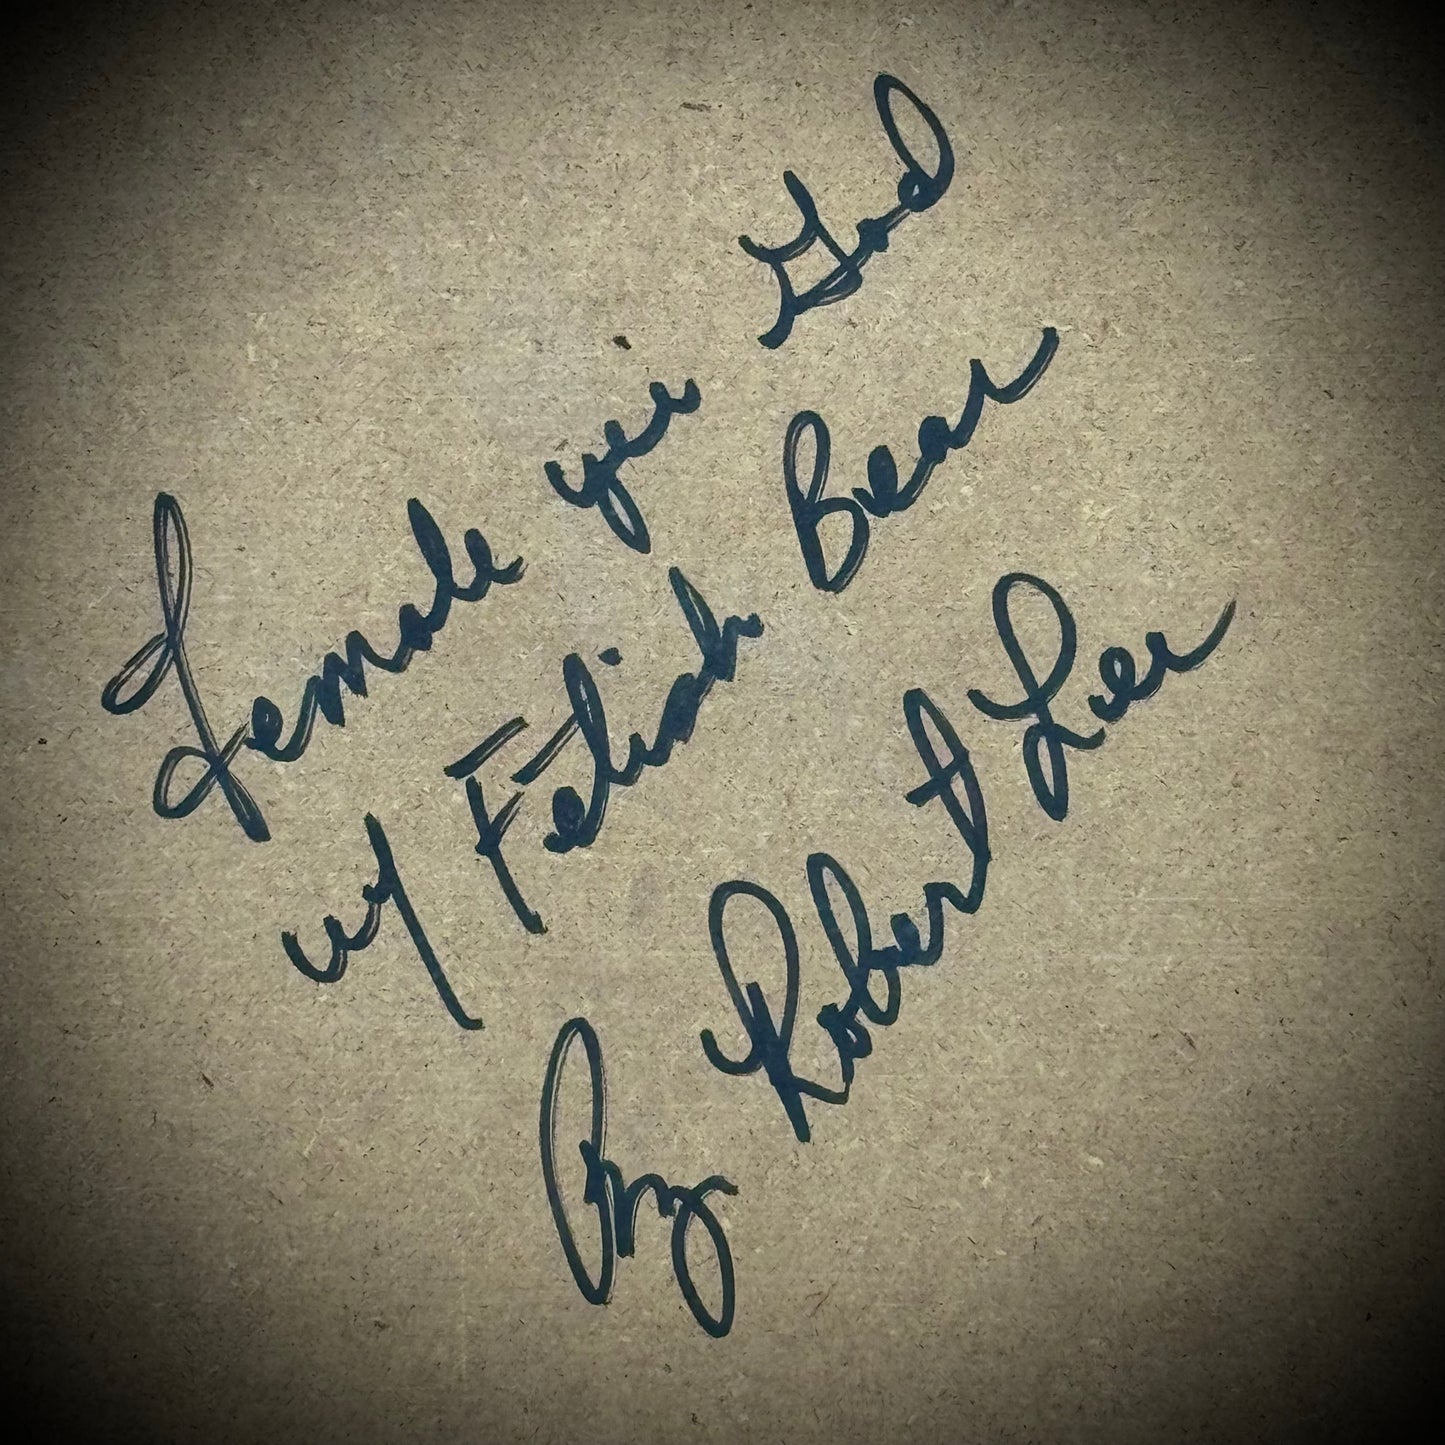 Female yei God
w/ Fetish Bear
By Robert Lee